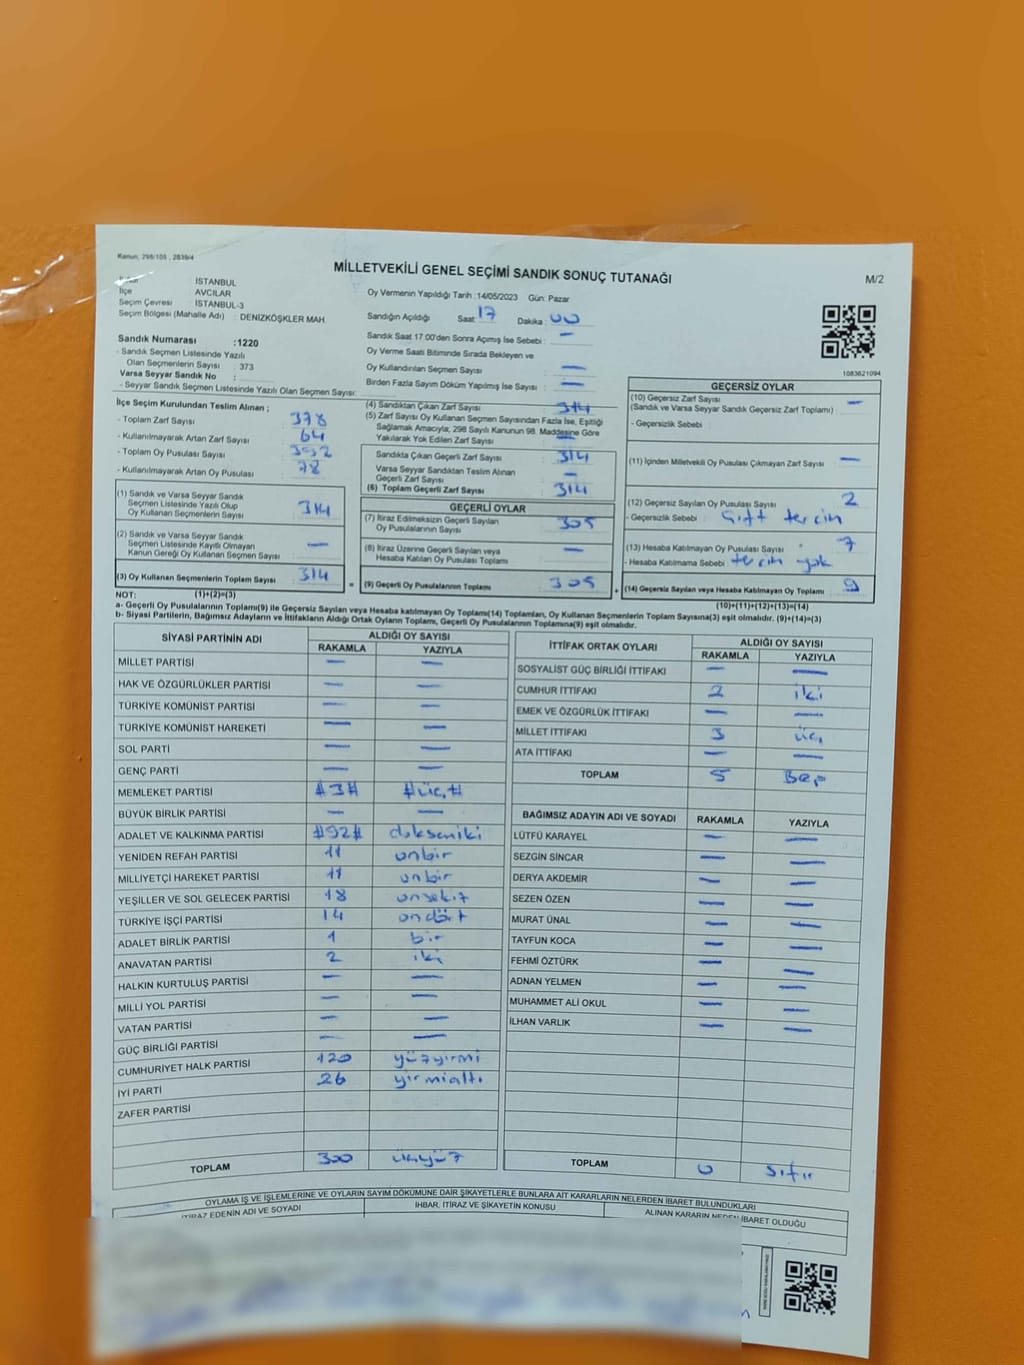 Kanun, 298/105 , 2839/4
MİLLETVEKİLİ GENEL SEÇİMİ SANDIK SONUÇ TUTANAĞI
M/2
İSTANBUL
İlçe AVCILAR
Seçim Çevresi : İSTANBUL-3
Seçim Bölgesi (Mahalle Adı) : DENİZKÖŞKLER MAH.
Oy Vermenin Yapıldığı Tarih :14/05/2023 Gün: Pazar
Sandığın Açıldığı Saat: 17 Dakika : 00
Sandık Saat 17:00'den Sonra Açımış İse Sebebi : —
Oy Verme Saati Bitiminde Sırada Bekleyen ve
Oy Kullandırılan Seçmen Sayısı —
Birden Fazla Sayım Döküm Yapılmış İse Sayısı —
Sandık Numarası :1220
- Sandık Seçmen Listesinde Yazılı
Olan Seçmenlerin Sayısı : 373
Varsa Seyyar Sandık No :
- Seyyar Sandık Seçmen Listesinde Yazılı Olan Seçmen Sayısı:
1083621094
İlçe Seçim Kurulundan Teslim Alınan ;
- Toplam Zarf Sayısı : 378
- Kullanılmayarak Artan Zarf Sayısı : 64
- Toplam Oy Pusulası Sayısı : 392
- Kullanılmayarak Artan Oy Pusulası : 78
(1) Sandık ve Varsa Seyyar Sandık
Seçmen Listesinde Yazılı Olup
Oy Kullanan Seçmenlerin Sayısı : 314
(2) Sandık ve Varsa Seyyar Sandık
Seçmen Listesinde Kayıtlı Olmayan
Kanun Gereği Oy Kullanan Seçmen Sayısı : —
(3) Oy Kullanan Seçmenlerin Toplam Sayısı : 314
(4) Sandıktan Çıkan Zarf Sayısı : 314
(5) Zarf Sayısı Oy Kullanan Seçmen Sayısından Fazla İse, Eşitliği
Sağlamak Amacıyla; 298 Sayılı Kanunun 98. Maddesine Göre
Yakılarak Yok Edilen Zarf Sayısı : —
Sandıkta Çıkan Geçerli Zarf Sayısı : 314
Varsa Seyyar Sandıktan Teslim Alınan
Geçerli Zarf Sayısı : —
(6) Toplam Geçerli Zarf Sayısı : 314
GEÇERLİ OYLAR
(7) İtiraz Edilmeksizin Geçerli Sayılan
Oy Pusulalarının Sayısı : 305
(8) İtiraz Üzerine Geçerli Sayılan veya
Hesaba Katılan Oy Pusulası Toplamı : —
= (9) Geçerli Oy Pusulalarının Toplamı : 305
GEÇERSİZ OYLAR
(10) Geçersiz Zarf Sayısı
(Sandık ve Varsa Seyyar Sandık Geçersiz Zarf Toplamı) : —
- Geçersizlik Sebebi :
(11) İçinden Milletvekili Oy Pusulası Çıkmayan Zarf Sayısı : —
(12) Geçersiz Sayılan Oy Pusulası Sayısı : 2
- Geçersizlik Sebebi : Çift tercih
(13) Hesaba Katılmayan Oy Pusulası Sayısı : 7
- Hesaba Katılmama Sebebi : tercih yok
+ (14) Geçersiz Sayılan veya Hesaba Katılmayan Oy Toplamı : 9
NOT: (1)+(2)=(3) (10)+(11)+(12)+(13)=(14)
a- Geçerli Oy Pusulalarının Toplamı(9) ile Geçersiz Sayılan veya Hesaba katılmayan Oy Toplamı(14) Toplamları, Oy Kullanan Seçmenlerin Toplam Sayısına(3) eşit olmalıdır. (9)+(14)=(3)
b- Siyasi Partilerin, Bağımsız Adayların ve İttifakların Aldığı Ortak Oyların Toplamı, Geçerli Oy Pusulalarının Toplamına(9) eşit olmalıdır.
SİYASİ PARTİNİN ADI ALDIĞI OY SAYISI
RAKAMLA YAZIYLA
MİLLET PARTİSİ — —
HAK VE ÖZGÜRLÜKLER PARTİSİ — —
TÜRKİYE KOMÜNİST PARTİSİ — —
TÜRKİYE KOMÜNİST HAREKETİ — —
SOL PARTİ — —
GENÇ PARTİ — —
MEMLEKET PARTİSİ #3# #üç#
BÜYÜK BİRLİK PARTİSİ — —
ADALET VE KALKINMA PARTİSİ #92# dokseniki
YENİDEN REFAH PARTİSİ 11 onbir
MİLLİYETÇİ HAREKET PARTİSİ 11 onbir
YEŞİLLER VE SOL GELECEK PARTİSİ 18 onsekiz
TÜRKİYE İŞÇİ PARTİSİ 14 ondört
ADALET BİRLİK PARTİSİ 1 bir
ANAVATAN PARTİSİ 2 iki
HALKIN KURTULUŞ PARTİSİ — —
MİLLİ YOL PARTİSİ — —
VATAN PARTİSİ — —
GÜÇ BİRLİĞİ PARTİSİ — —
CUMHURİYET HALK PARTİSİ 120 yüzyirmi
İYİ PARTİ 26 yirmialtı
ZAFER PARTİSİ
TOPLAM 300 üçyüz
İTTİFAK ORTAK OYLARI ALDIĞI OY SAYISI
RAKAMLA YAZIYLA
SOSYALİST GÜÇ BİRLİĞİ İTTİFAKI — —
CUMHUR İTTİFAKI 2 iki
EMEK VE ÖZGÜRLÜK İTTİFAKI — —
MİLLET İTTİFAKI 3 üç
ATA İTTİFAKI — —
TOPLAM 5 Beş
BAĞIMSIZ ADAYIN ADI VE SOYADI RAKAMLA YAZIYLA
LÜTFÜ KARAYEL — —
SEZGİN SİNCAR — —
DERYA AKDEMİR — —
SEZEN ÖZEN — —
MURAT ÜNAL — —
TAYFUN KOCA — —
FEHMİ ÖZTÜRK — —
ADNAN YELMEN — —
MUHAMMET ALİ OKUL — —
İLHAN VARLIK — —
TOPLAM 0 sıfır
OYLAMA İŞ VE İŞLEMLERİNE VE OYLARIN SAYIM DÖKÜMÜNE DAİR ŞİKAYETLERLE BUNLARA AİT KARARLARIN NELERDEN İBARET BULUNDUKLARI
İTİRAZ EDENİN ADI VE SOYADI İHBAR, İTİRAZ VE ŞİKAYETİN KONUSU ALINAN KARARIN NEDEN İBARET OLDUĞU